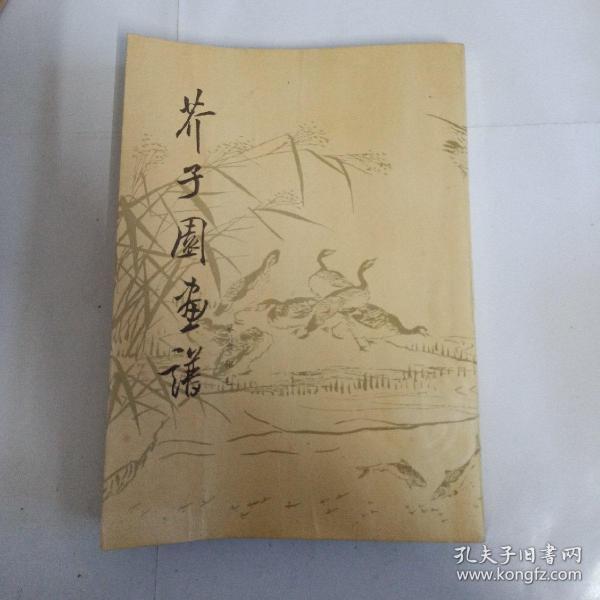 芥子園畫譜
孔夫子旧書网
www.kongfz.com